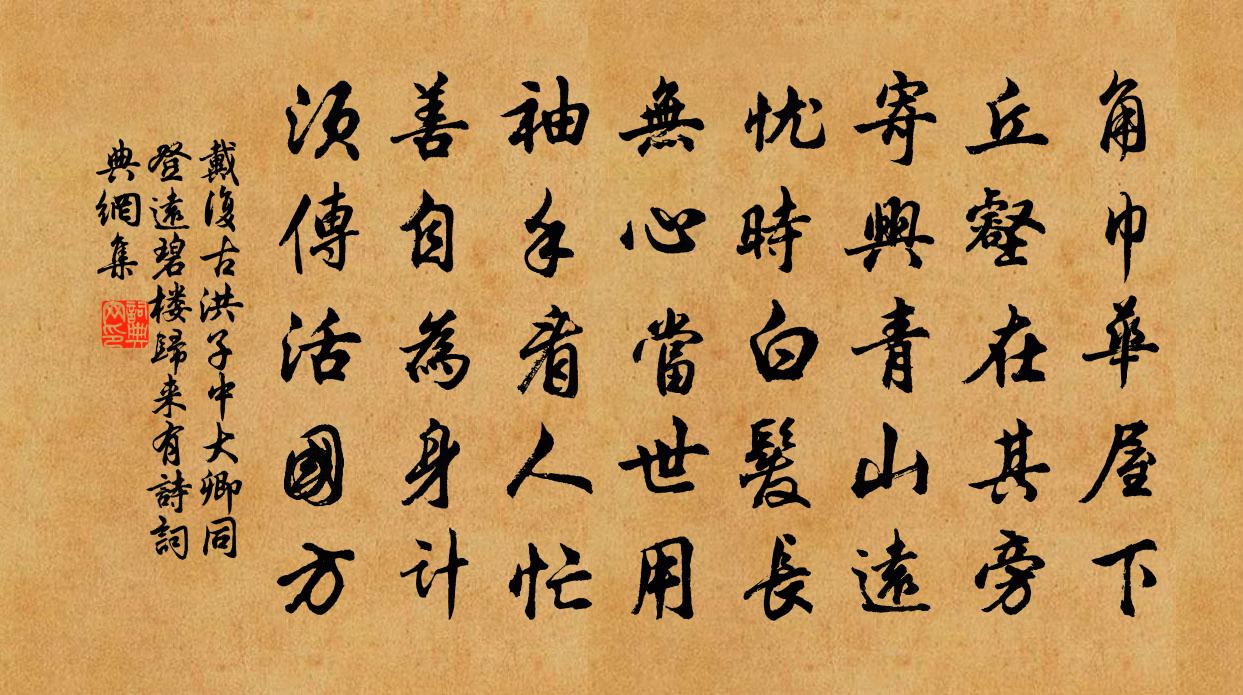 角巾華屋下
丘壑在其旁
寄興青山遠
忧時白髮長
無心當世用
袖手看人忙
善自為身計
須傳活國方
戴復古洪子中大卿同
登遠碧楼歸来有詩詞
典網集
詞典
网印